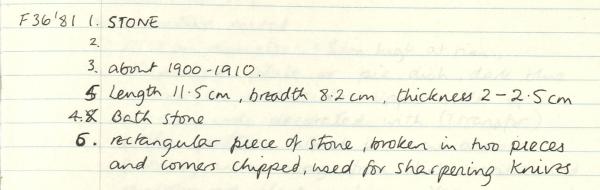 F36'81 1. STONE
2.
3. about 1900-1910.
5 Length 11.5cm, breadth 8.2cm, thickness 2-2.5cm
4. Bath stone
6. rectangular piece of stone, broken in two pieces
and corners chipped, used for sharpening knives